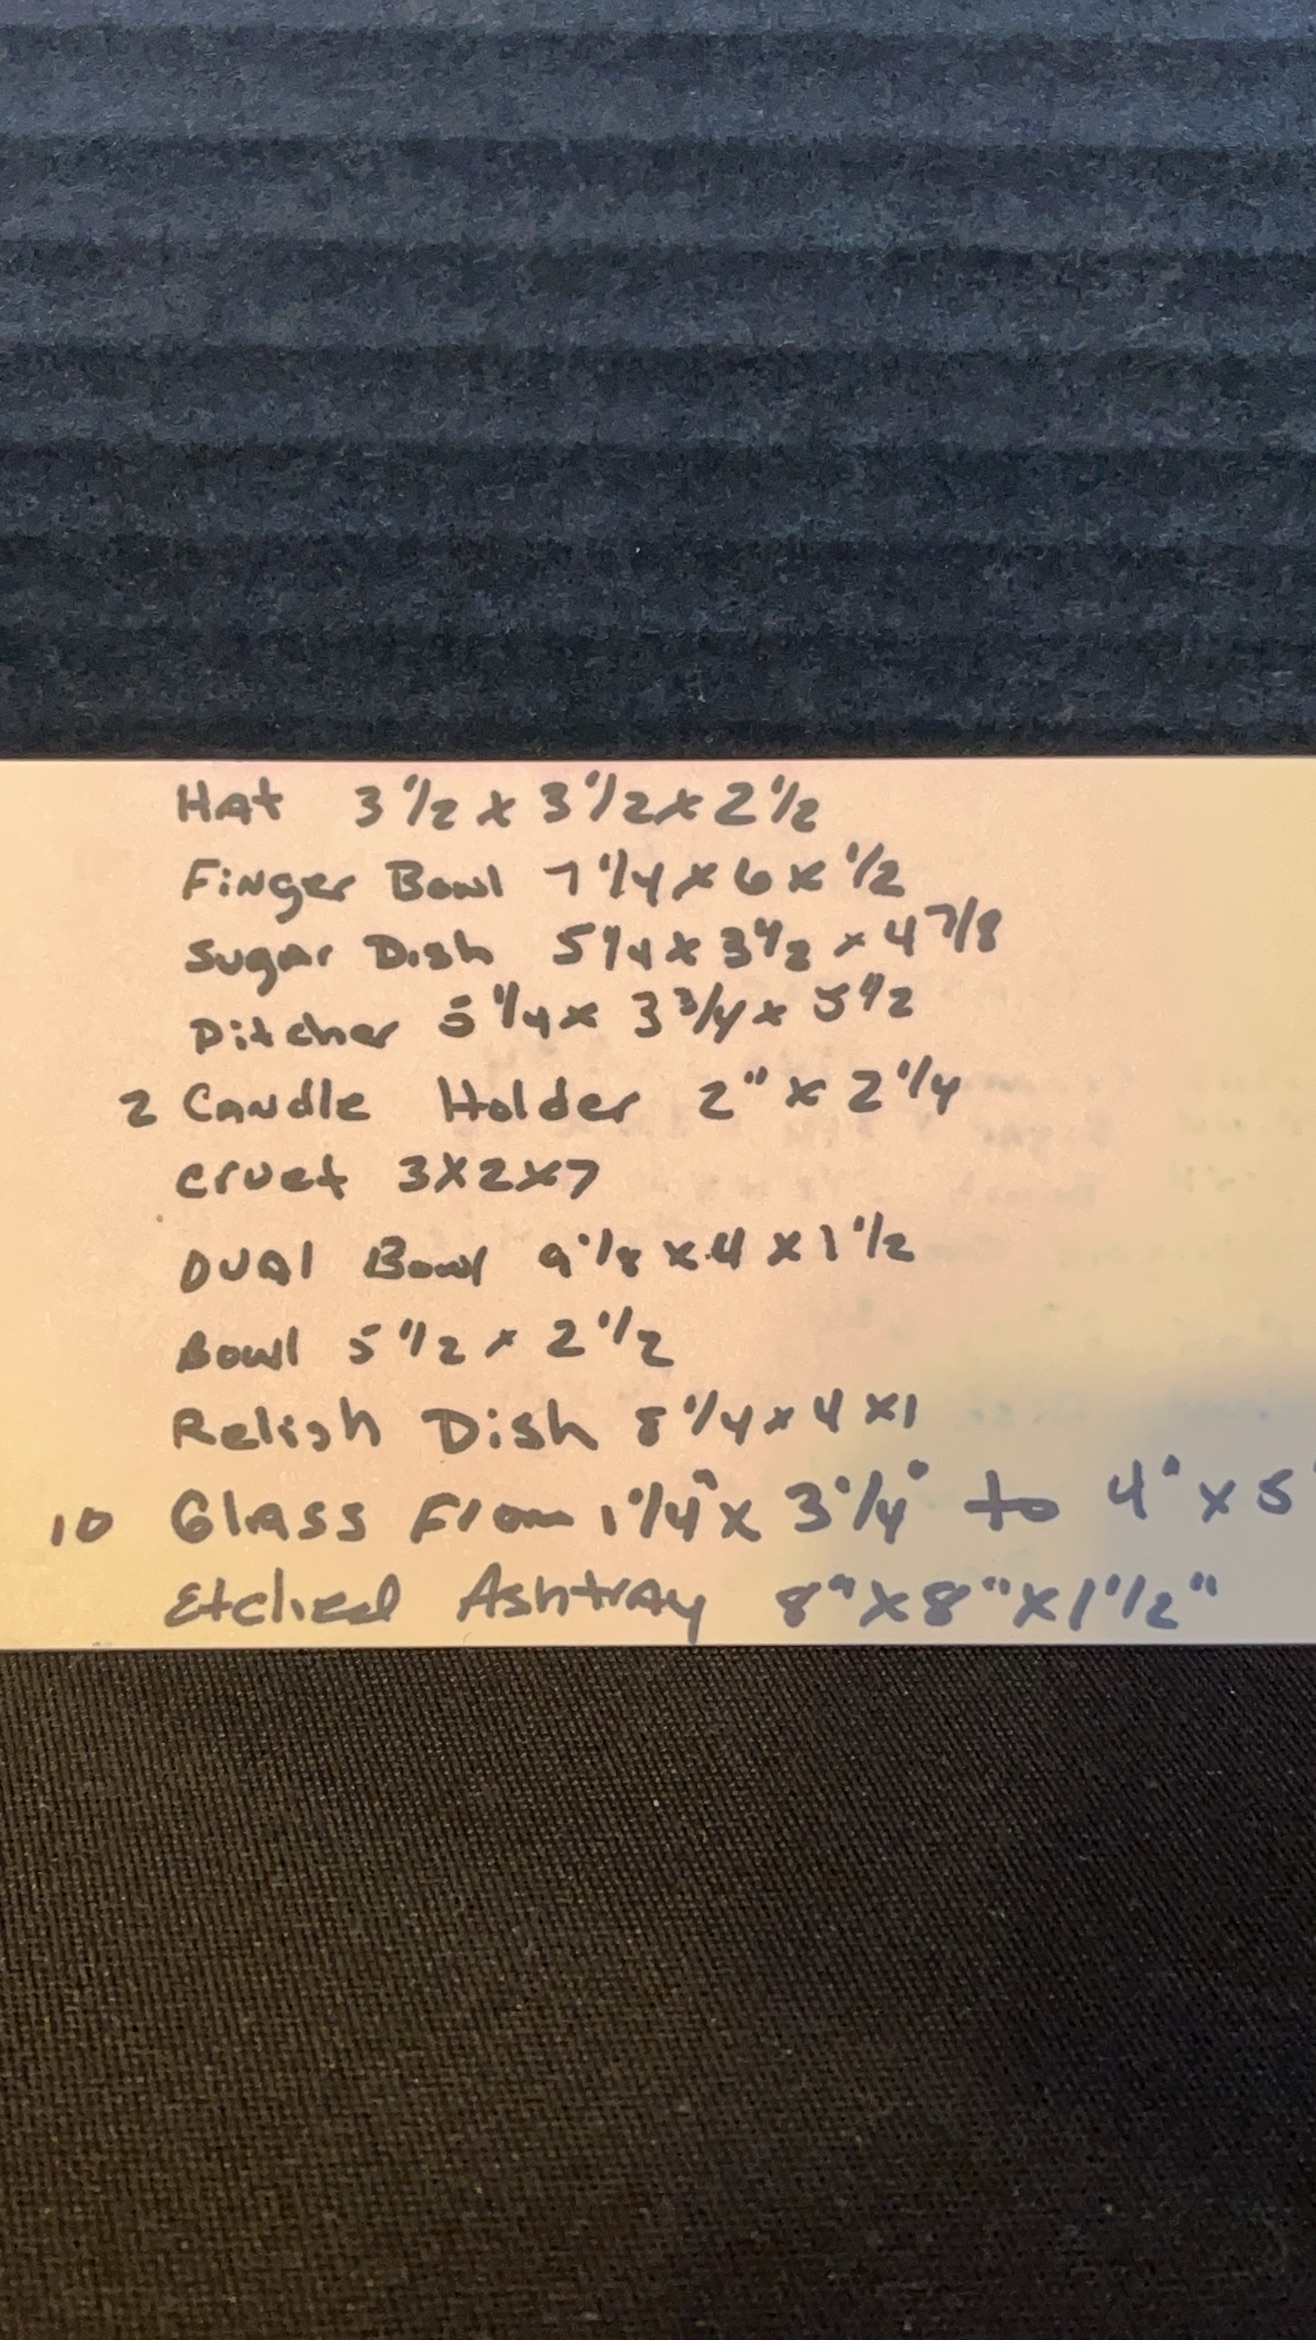 Hat 3 1/2 x 3 1/2 x 2 1/2
Finger Bowl 7 1/4 x 6 x 1/2
Sugar Dish 5 1/4 x 3 1/2 x 4 7/8
Pitcher 5 1/4 x 3 3/4 x 5 1/2
2 Candle Holder 2" x 2 1/4
Cruet 3x2x7
Dual Bowl 9 1/8 x 4 x 1 1/2
Bowl 5 1/2 x 2 1/2
Relish Dish 8 1/4 x 4 x1
10 Glass From 1 1/4" x 3 1/4" to 4" x 5
Etched Ashtray 8" x 8" x 1 1/2"